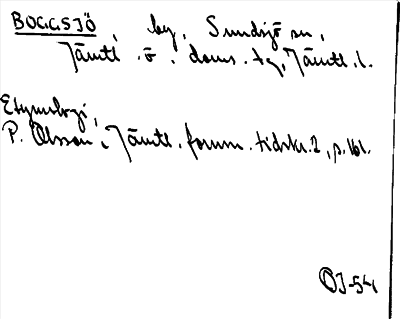 BOGGSJÖ, by, Sundsjö sn,
Jämtl. ö. doms. tg, Jämtl. l.
Etymologi,
P. Olsson i Jämtl. fornm. tidskr. 2, p. 161.
OJ-54